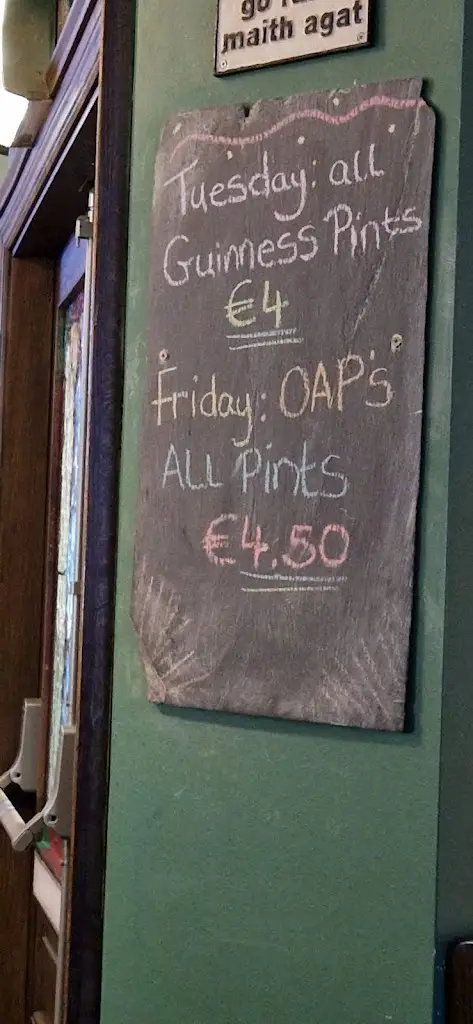 go
maith agat
Tuesday: all
Guinness Pints
€4
Friday: OAP's
ALL Pints
€4.50